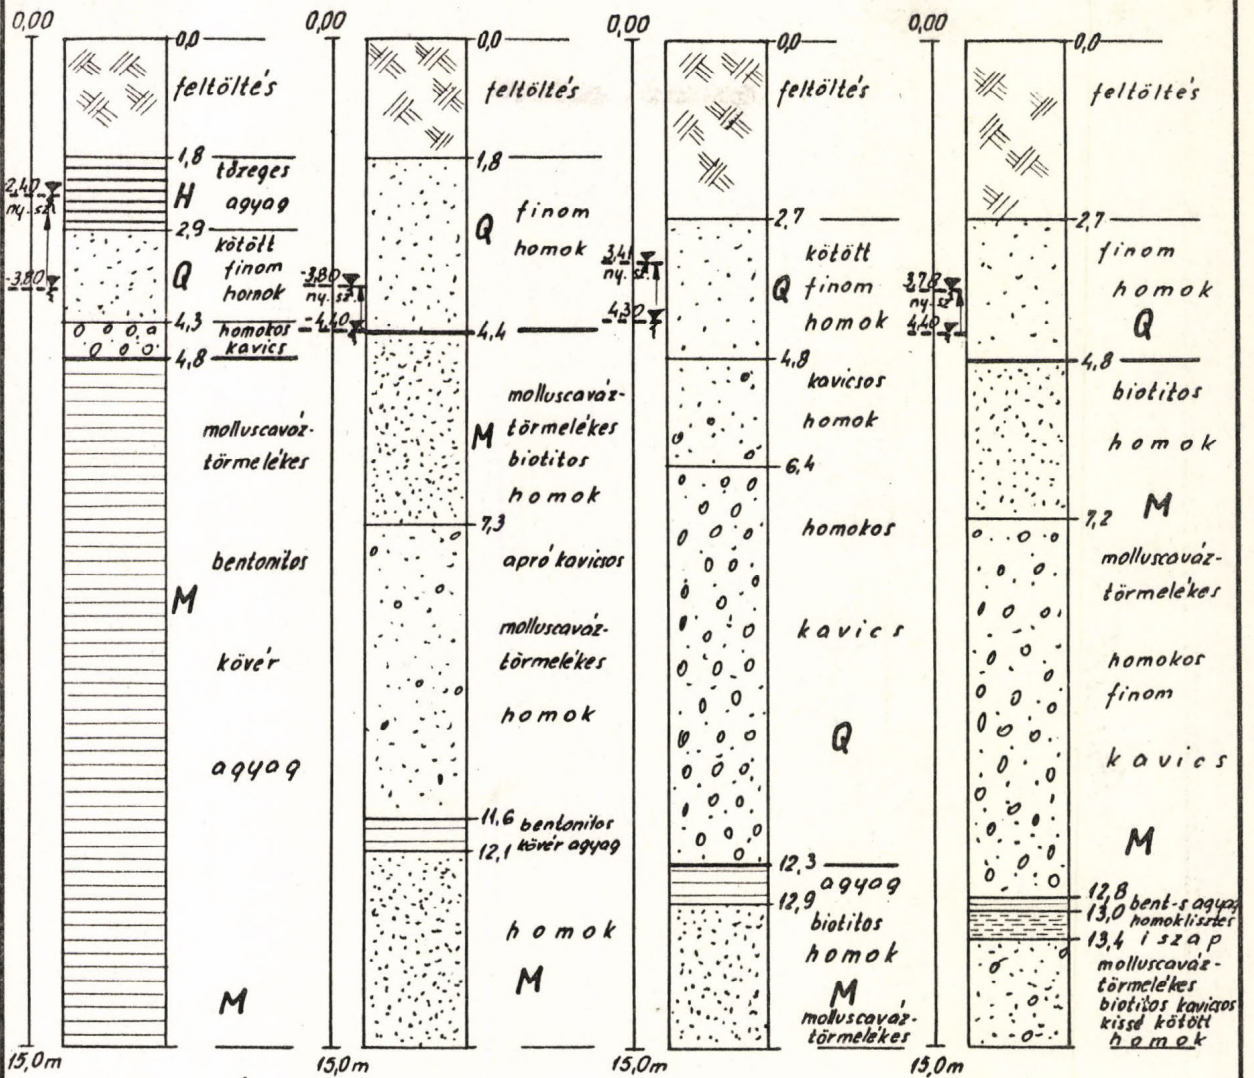 0,00
0,0
feltöltés
1,8
tőzeges
H agyag
2,40
ny. sz.
2,9
kötött
Q finom
homok
-3,80
4,3
homokos
kavics
4,8
molluscaváz-
törmelékes
bentonitos
M
kövér
agyag
M
15,0m
0,00
0,0
feltöltés
1,8
Q finom
homok
-3,80
ny. sz.
-4,40
4,4
molluscaváz-
M törmelékes
biotitos
homok
7,3
apró kavicsos
molluscaváz-
törmelékes
homok
11,6
bentonitos
kövér agyag
12,1
homok
M
15,0m
0,00
0,0
feltöltés
2,7
kötött
3,41
ny. sz.
Q finom
4,30
homok
4,8
kavicsos
homok
6,4
homokos
kavics
Q
12,3
agyag
12,9
biotitos
homok
M
molluscaváz-
törmelékes
15,0m
0,00
0,0
feltöltés
2,7
finom
3,78
ny. sz.
homok
4,40
Q
4,8
biotitos
homok
M
7,2
molluscaváz-
törmelékes
homokos
finom
kavics
M
12,8
bent-s agyag
13,0
homoklisztes
13,4 iszap
molluscaváz-
törmelékes
biotitos kavicsos
kissé kötött
homok
15,0m